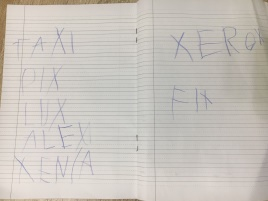 TAXI
PIX
LUX
ALEX
XENIA
XEROX
FIX